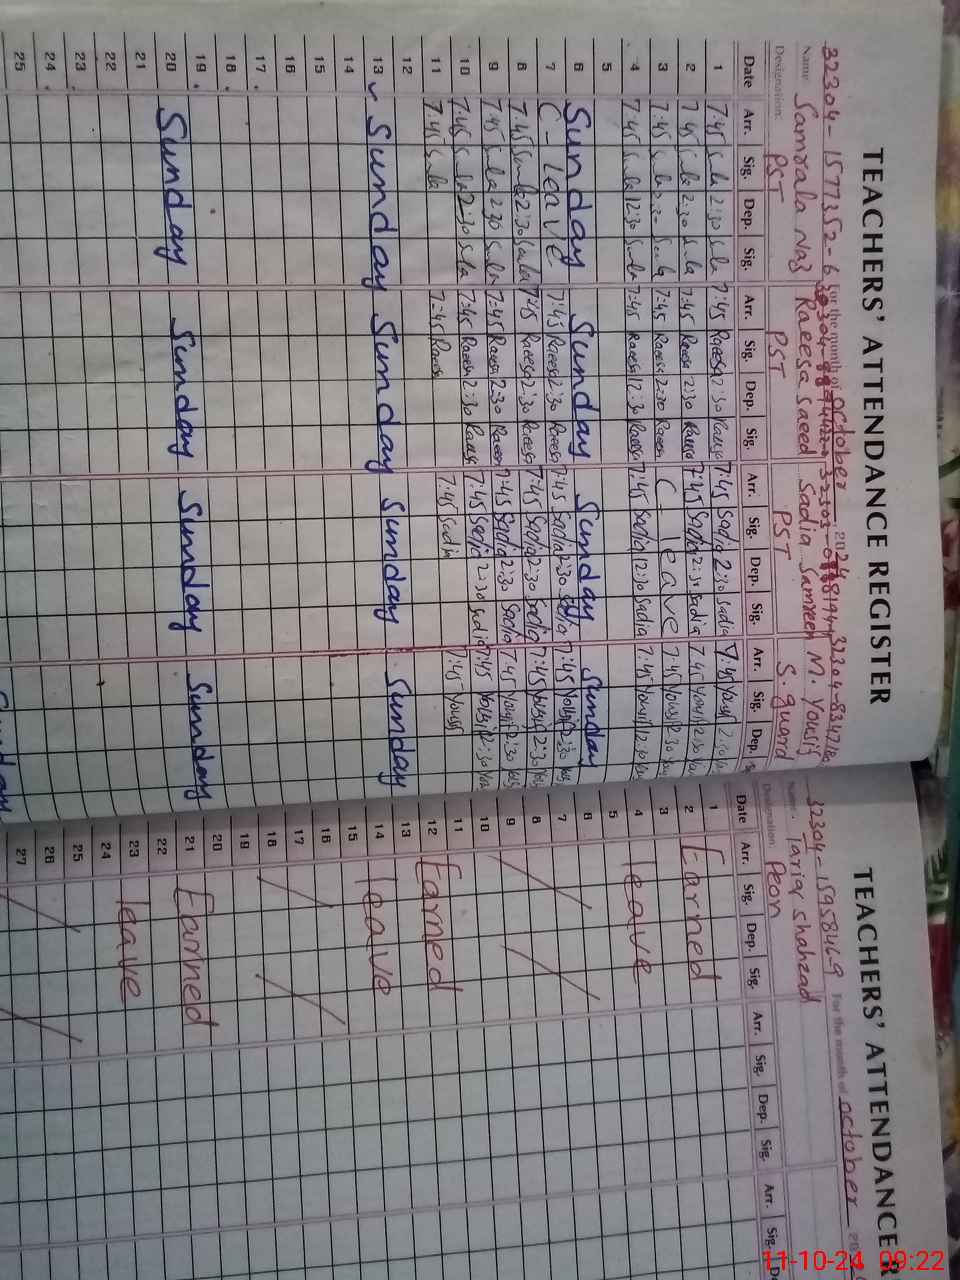 TEACHERS' ATTENDANCE REGISTER
For the month of October 2024
32304-1577352-6
Name Samrala Naz Raeesa Saeed Sadia Samreen M. Yousif
Designation: PST PST PST S. guard
Date Arr. Sig. Dep. Sig. Arr. Sig. Dep. Sig. Arr. Sig. Dep. Sig. Arr. Sig. Dep.
1 7:45 2:30 7:45 Raeesa 2:30 Raeesa 7:45 Sadia 2:30 Sadia 7:45 Yousif 2:30
2 7:45 2:30 7:45 Raeesa 2:30 Raeesa 7:45 Sadia 2:30 Sadia 7:45 Yousif 2:30
3 7:45 2:30 7:45 Raeesa 2:30 Raeesa C - leave 7:45 Yousif 2:30
4 7:45 12:30 7:45 Raeesa 12:30 Raeesa 7:45 Sadia 12:30 Sadia 7:45 Yousif 12:30
5
6 Sunday Sunday Sunday Sunday
7 C - leave 7:45 Raeesa 2:30 Raeesa 7:45 Sadia 2:30 Sadia 7:45 Yousif 2:30
8 7:45 2:30 7:45 Raeesa 2:30 Raeesa 7:45 Sadia 2:30 Sadia 7:45 Yousif 2:30
9 7:45 2:30 7:45 Raeesa 2:30 Raeesa 7:45 Sadia 2:30 Sadia 7:45 Yousif 2:30
10 7:45 2:30 7:45 Raeesa 2:30 Raeesa 7:45 Sadia 2:30 Sadia 7:45 Yousif 2:30
11 7:45 7:45 Raeesa 7:45 Sadia 7:45 Yousif
12
13 Sunday Sunday Sunday Sunday
14
15
16
17
18
19
20 Sunday Sunday Sunday Sunday
21
22
23
24
25
TEACHERS' ATTENDANCE R
For the month of October 20
32304-1595846-9
Name. Tariq Shahzad
Designation: Peon
Date Arr. Sig. Dep. Sig. Arr. Sig. Dep. Sig. Arr. Sig. De
1
2 Earned
3
4 leave
5
6
7
8
9
10
11
12 Earned
13
14 leave
15
16
17
18
19
20
21 Earned
22
23 leave
24
25
26
27
11-10-24 09:22